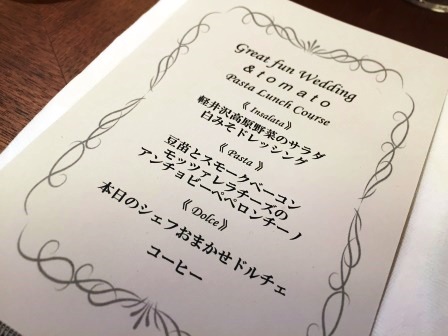 Great fun Wedding
& tomato
Pasta Lunch Course
《 Insalata 》
軽井沢高原野菜のサラダ
白みそドレッシング
《 Pasta 》
豆苗とスモークベーコン
モッツァレラチーズの
アンチョビーペペロンチーノ
《 Dolce 》
本日のシェフおまかせドルチェ
コーヒー